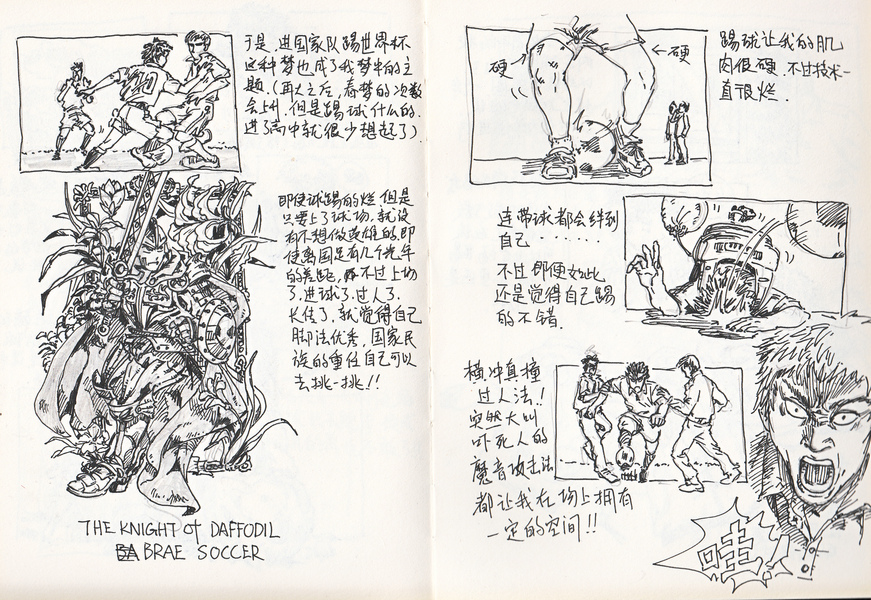 于是,进国家队踢世界杯
这种梦也成了我梦中的主
题.(再大之后,春梦的次数
会上升,但是踢球什么的.
进了高中就很少想起了)
即使球踢的烂,但是
只要上了球场,就没
有不想做英雄的.即
使离国足有几个光年
的差距,不过上场
了.进球了.过人了.
长传了.就觉得自己
脚法优秀.国家民
族的重任自己可以
去挑一挑!!
THE KNIGHT of DAFFODIL
BRAE SOCCER
硬
硬
踢球让我的肌
肉很硬.不过技术一
直很烂.
连带球都会绊到
自己.......
不过即使如此
还是觉得自己踢
的不错.
横冲直撞
过人法!
突然大叫
吓死人的
魔音攻击法
都让我在场上拥有
一定的空间!!
哇